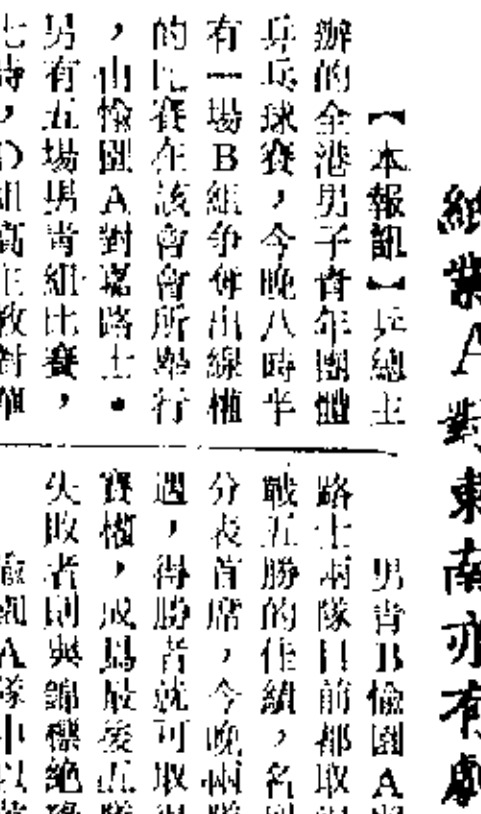 紙業A對東南亦有劇
【本報訊】乒總主
辦的全港男子青年團體
乒乓球賽，今晚八時半
有一場B組爭奪出線權
的比賽在該會會所舉行
，愉園A對嘉路士。
另有五場男青組比賽，
七時，
男青B愉園A
路士兩隊目前都取
戰五勝的佳績，名列
分表首席，今晚兩隊
遇，得勝者就可取得
賽權，成爲最後五隊
失敗者則與錦標絕緣
愉園A隊中以